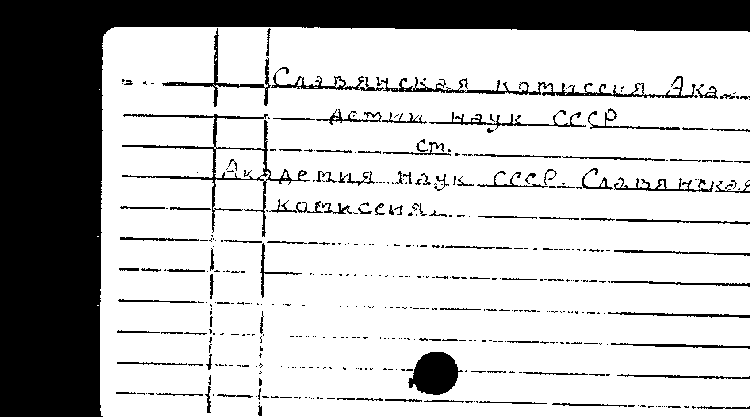 Славянская комиссия Ака-
демии наук СССР
см.
Академия наук СССР. Славянская
комиссия.